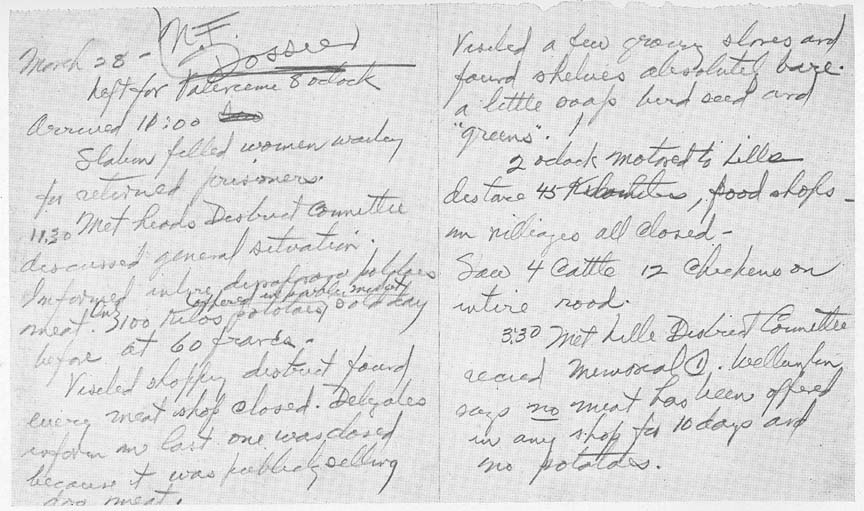 M.F.
Dossier
March 28 -
Left for Valencienne 8 oclock
Arrived 10:00
Station filled women waiting
for returned prisoners.
11.30 Met heads District Committee
discussed general situation.
Informed intire disapearance potatoes
meat. offered in public market
3100 Kilos potatoes sold day
before at 60 francs.
Visited shopping district found
every meat shop closed. Delegates
inform me last one was closed
because it was publicly selling
dog meat.
Visited a few grocery stores and
found shelves absolutely bare.
a little soap bird seed and
"greens".
2 oclock motored to Lille
distance 45 Kilometers, food shops
in villiages all closed -
Saw 4 Cattle 12 Chickens on
intire road.
3:30 Met Lille District Committee
recived Memorial ①.
says no meat has been offered
in any shop for 10 days and
no potatoes.